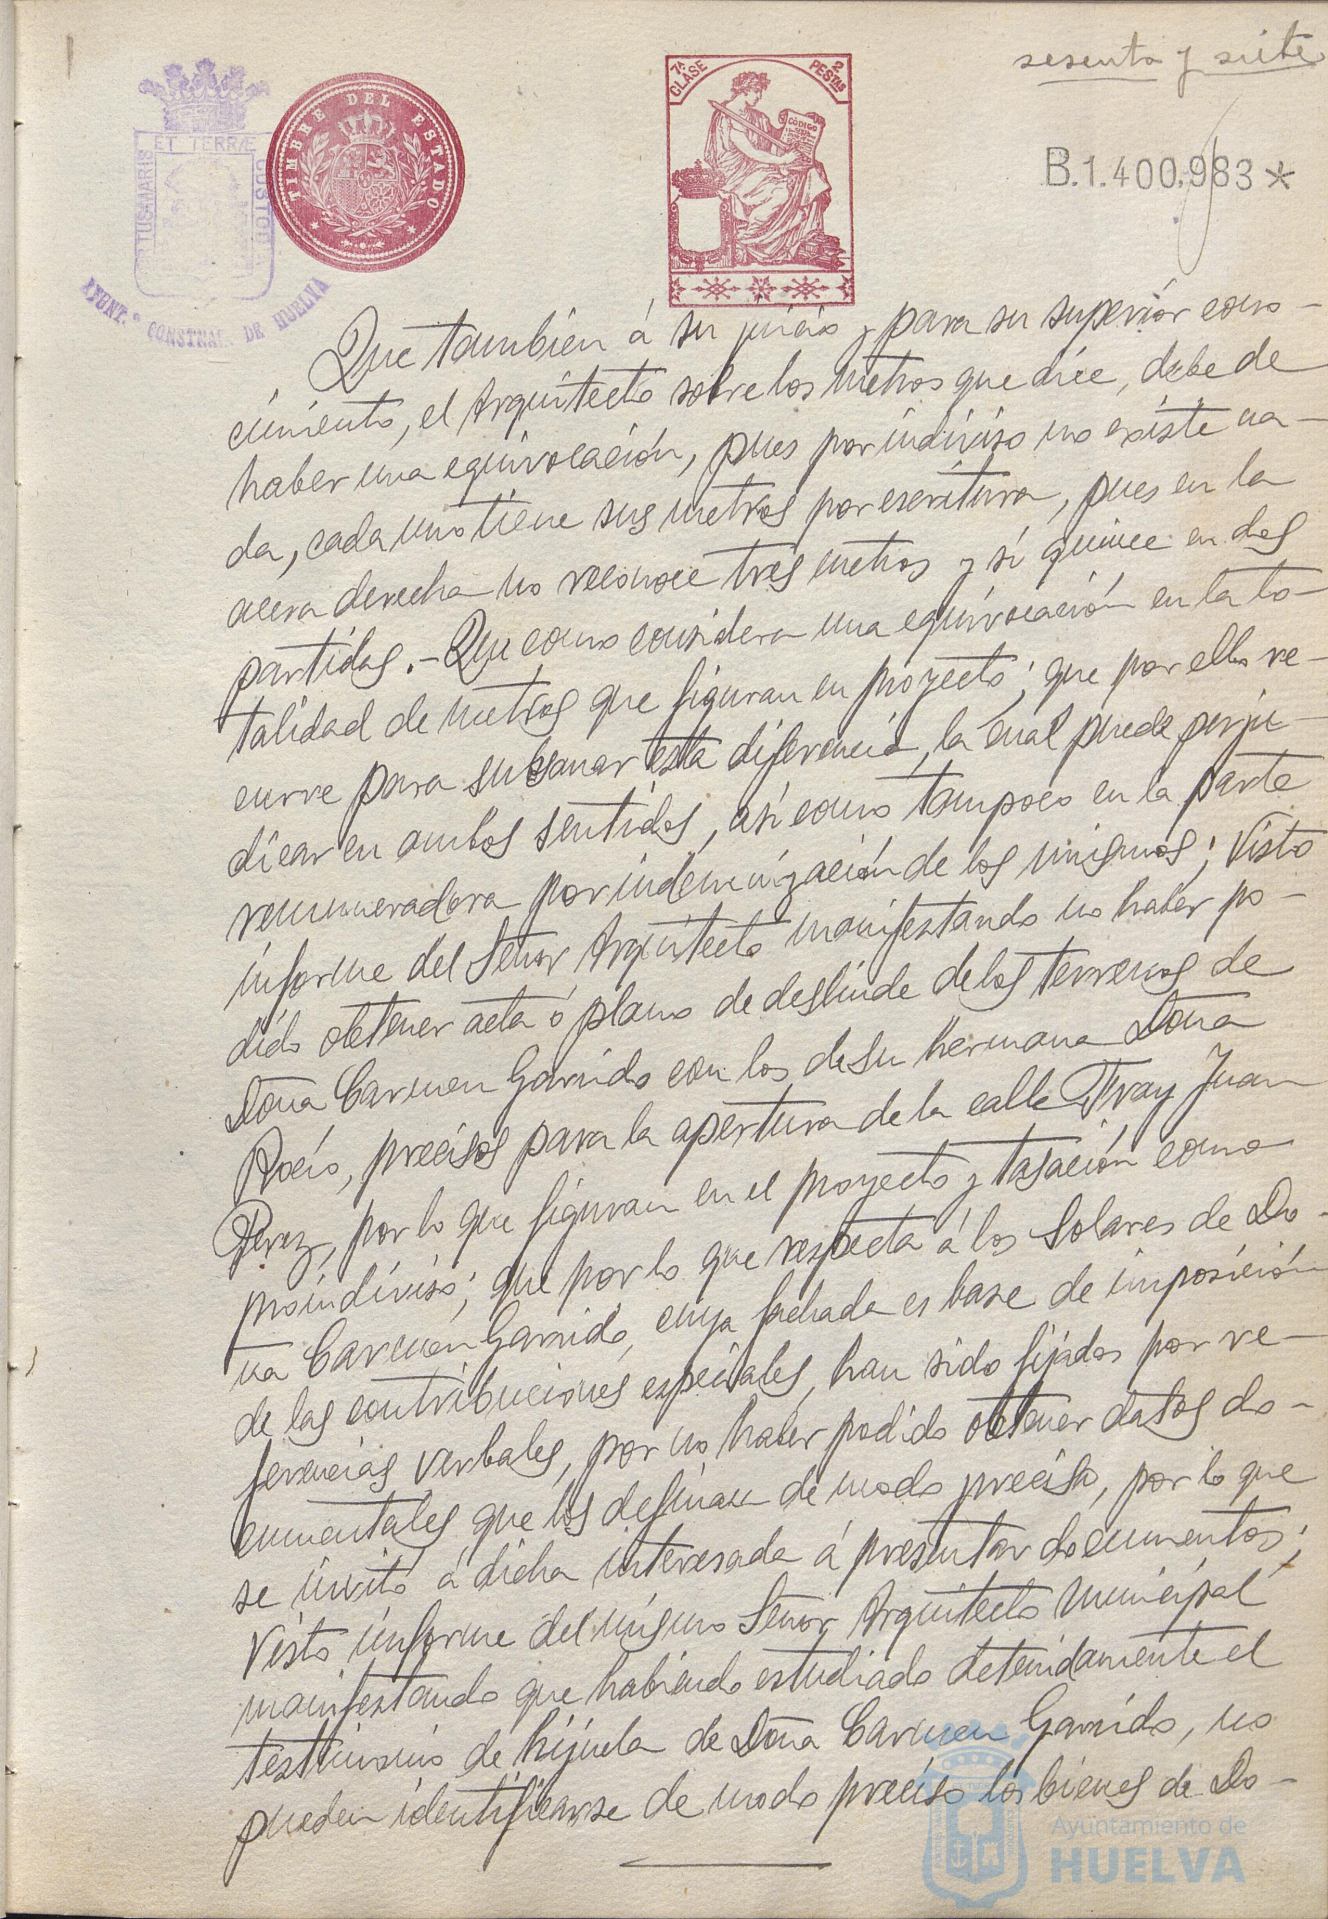 sesenta y siete
ET TERRÆ
TUS MARIS
CUSTOD
AYUNT.º CONSTNAL. DE HUELVA
TIMBRE DEL ESTADO
7ª CLASE
2 PESTAS
CÓDIGO
B.1.400.983*
Que tambien á su juicio y para su superior cono-
cimiento, el Arquitecto sobre los metros que dice, debe de
haber una equivocación, pues por indiviso no existe na-
da, cada uno tiene sus metros por escritura, pues en la
acera derecha no reconoce tres metros y sí quince en dos
partidas.- Que como considera una equivocación en la to-
talidad de metros que figuran en proyecto; que por ello re-
curre para subsanar esta diferencia, la cual puede perju-
dicar en ambos sentidos, así como tampoco en la parte
remuneradora por indemnización de los mismos; Visto
informe del Señor Arquitecto manifestando no haber po-
dido obtener acta ó plano de deslinde de los terrenos de
Doña Carmen Garrido con los de su hermana Doña
Rocío, precisos para la apertura de la calle Fray Juan
Perez, por lo que figuran en el proyecto y tasación como
proindiviso; que por lo que respecta á los solares de Do-
ña Carmen Garrido, cuya fachada es base de imposición
de las contribuciones especiales, han sido fijados por re-
ferencias verbales, por no haber podido obtener datos do-
cumentales que los definan de modo preciso, por lo que
se invitó á dicha interesada á presentar documentos;
Visto informe del mismo Señor Arquitecto Municipal
manifestando que habiendo estudiado detenidamente el
testimonio de hijuela de Doña Carmen Garrido, no
pueden identificarse de modo preciso los bienes de Do-
Ayuntamiento de
HUELVA